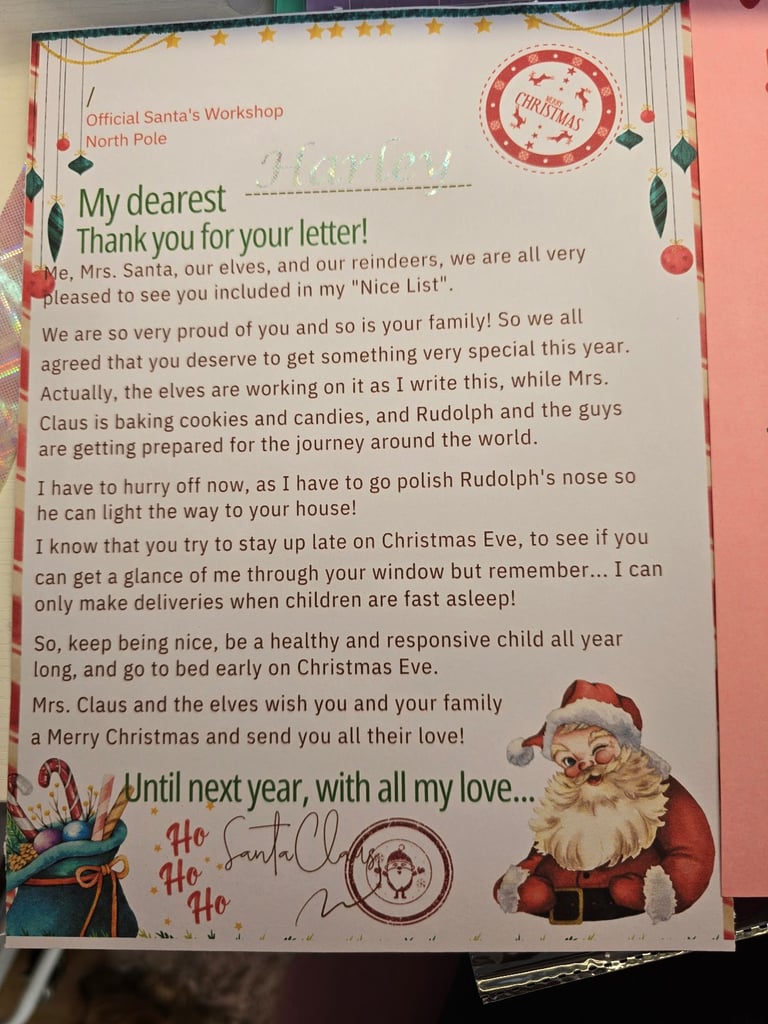 /
Official Santa's Workshop
North Pole
MERRY
CHRISTMAS
Harley
My dearest
Thank you for your letter!
Me, Mrs. Santa, our elves, and our reindeers, we are all very
pleased to see you included in my "Nice List".
We are so very proud of you and so is your family! So we all
agreed that you deserve to get something very special this year.
Actually, the elves are working on it as I write this, while Mrs.
Claus is baking cookies and candies, and Rudolph and the guys
are getting prepared for the journey around the world.
I have to hurry off now, as I have to go polish Rudolph's nose so
he can light the way to your house!
I know that you try to stay up late on Christmas Eve, to see if you
can get a glance of me through your window but remember... I can
only make deliveries when children are fast asleep!
So, keep being nice, be a healthy and responsive child all year
long, and go to bed early on Christmas Eve.
Mrs. Claus and the elves wish you and your family
a Merry Christmas and send you all their love!
Until next year, with all my love...
Ho
Ho
Ho
Santa Claus